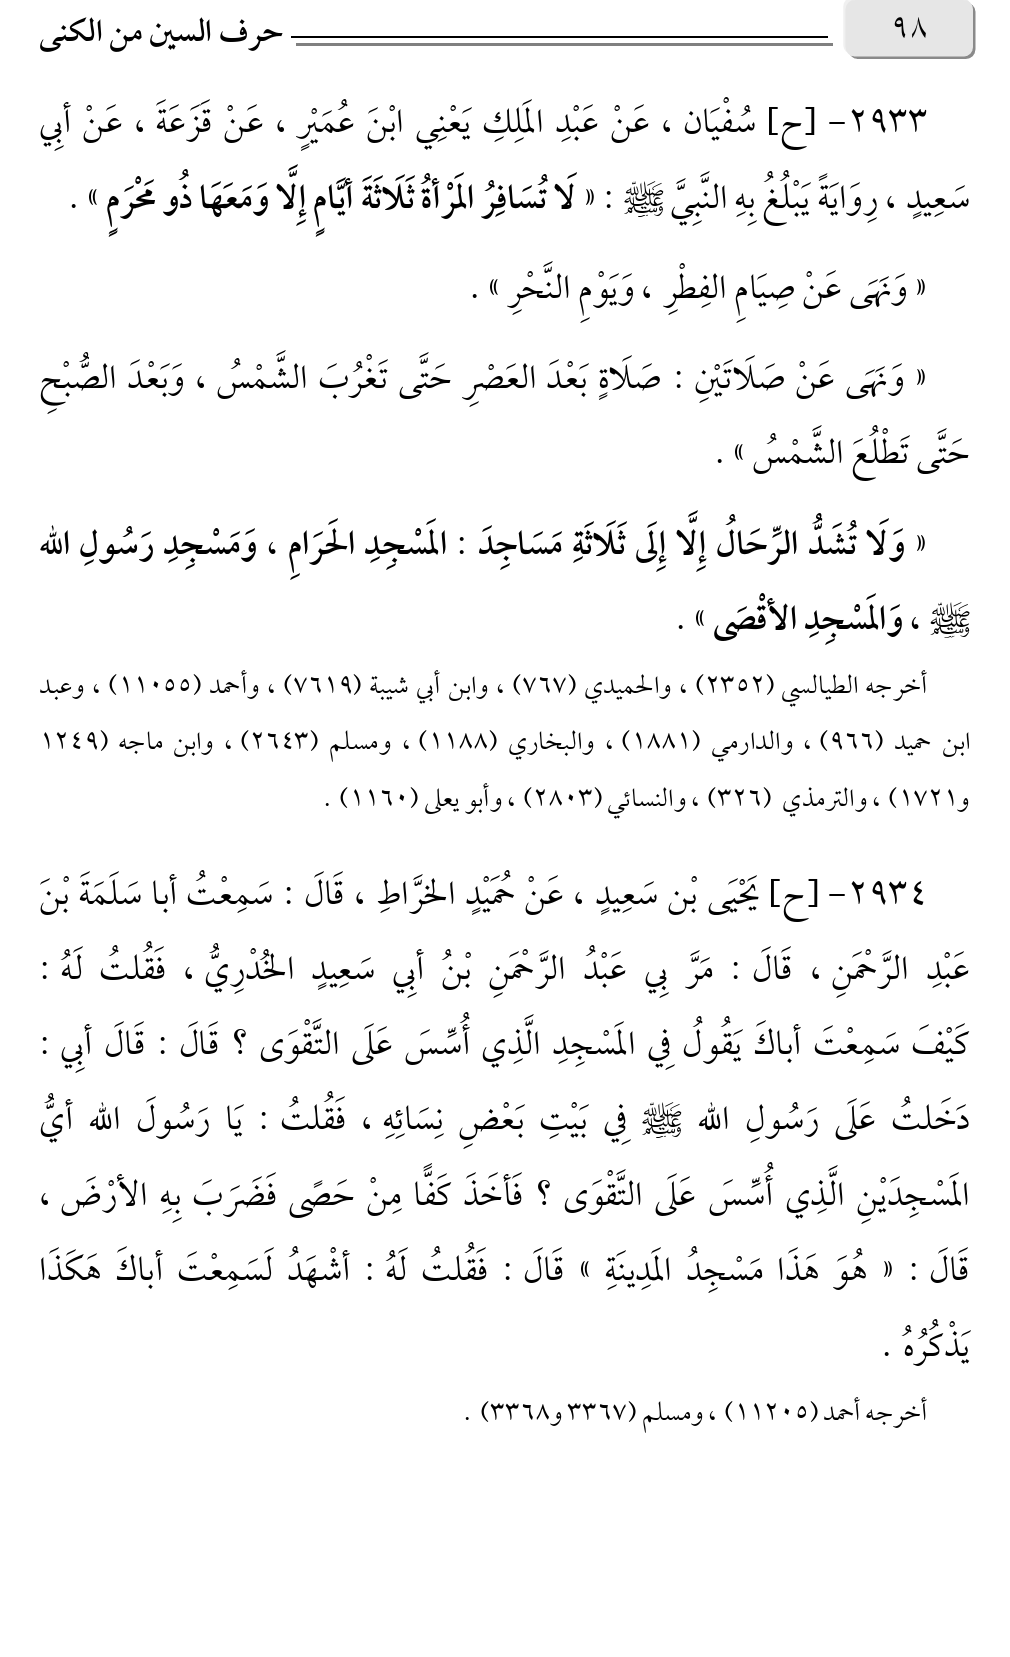 ٩٨
حرف السين من الكنى
٢٩٣٣- [ح] سُفْيَان ، عَنْ عَبْدِ المَلِكِ يَعْنِي ابْنَ عُمَيْرٍ ، عَنْ قَزَعَةَ ، عَنْ أَبِي
سَعِيدٍ ، رِوَايَةً يَبْلُغُ بِهِ النَّبِيَّ ﷺ : « لَا تُسَافِرُ المَرْأةُ ثَلَاثَةَ أيَّامٍ إِلَّا وَمَعَهَا ذُو مَحْرَمٍ » .
« وَنَهَى عَنْ صِيَامِ الفِطْرِ ، وَيَوْمِ النَّحْرِ » .
« وَنَهَى عَنْ صَلَاتَيْنِ : صَلَاةٍ بَعْدَ العَصْرِ حَتَّى تَغْرُبَ الشَّمْسُ ، وَبَعْدَ الصُّبْحِ
حَتَّى تَطْلُعَ الشَّمْسُ » .
« وَلَا تُشَدُّ الرِّحَالُ إِلَّا إِلَى ثَلَاثَةِ مَسَاجِدَ : المَسْجِدِ الحَرَامِ ، وَمَسْجِدِ رَسُولِ الله
ﷺ ، وَالمَسْجِدِ الأقْصَى » .
أخرجه الطيالسي (٢٣٥٢) ، والحميدي (٧٦٧) ، وابن أبي شيبة (٧٦١٩) ، وأحمد (١١٠٥٥) ، وعبد
ابن حميد (٩٦٦) ، والدارمي (١٨٨١) ، والبخاري (١١٨٨) ، ومسلم (٢٦٤٣) ، وابن ماجه (١٢٤٩
و١٧٢١) ، والترمذي (٣٢٦) ، والنسائي (٢٨٠٣) ، وأبو يعلى (١١٦٠) .
٢٩٣٤- [ح] يَحْيَى بْن سَعِيدٍ ، عَنْ حُمَيْدٍ الخَرَّاطِ ، قَالَ : سَمِعْتُ أبا سَلَمَةَ بْنَ
عَبْدِ الرَّحْمَنِ ، قَالَ : مَرَّ بِي عَبْدُ الرَّحْمَنِ بْنُ أبِي سَعِيدٍ الخُدْرِيُّ ، فَقُلتُ لَهُ :
كَيْفَ سَمِعْتَ أباكَ يَقُولُ فِي المَسْجِدِ الَّذِي أُسِّسَ عَلَى التَّقْوَى ؟ قَالَ : قَالَ أبِي :
دَخَلتُ عَلَى رَسُولِ الله ﷺ فِي بَيْتِ بَعْضِ نِسَائِهِ ، فَقُلتُ : يَا رَسُولَ الله أيُّ
المَسْجِدَيْنِ الَّذِي أُسِّسَ عَلَى التَّقْوَى ؟ فَأخَذَ كَفًّا مِنْ حَصًى فَضَرَبَ بِهِ الأرْضَ ،
قَالَ : « هُوَ هَذَا مَسْجِدُ المَدِينَةِ » قَالَ : فَقُلتُ لَهُ : أشْهَدُ لَسَمِعْتَ أباكَ هَكَذَا
يَذْكُرُهُ .
أخرجه أحمد (١١٢٠٥) ، ومسلم (٣٣٦٧ و٣٣٦٨) .